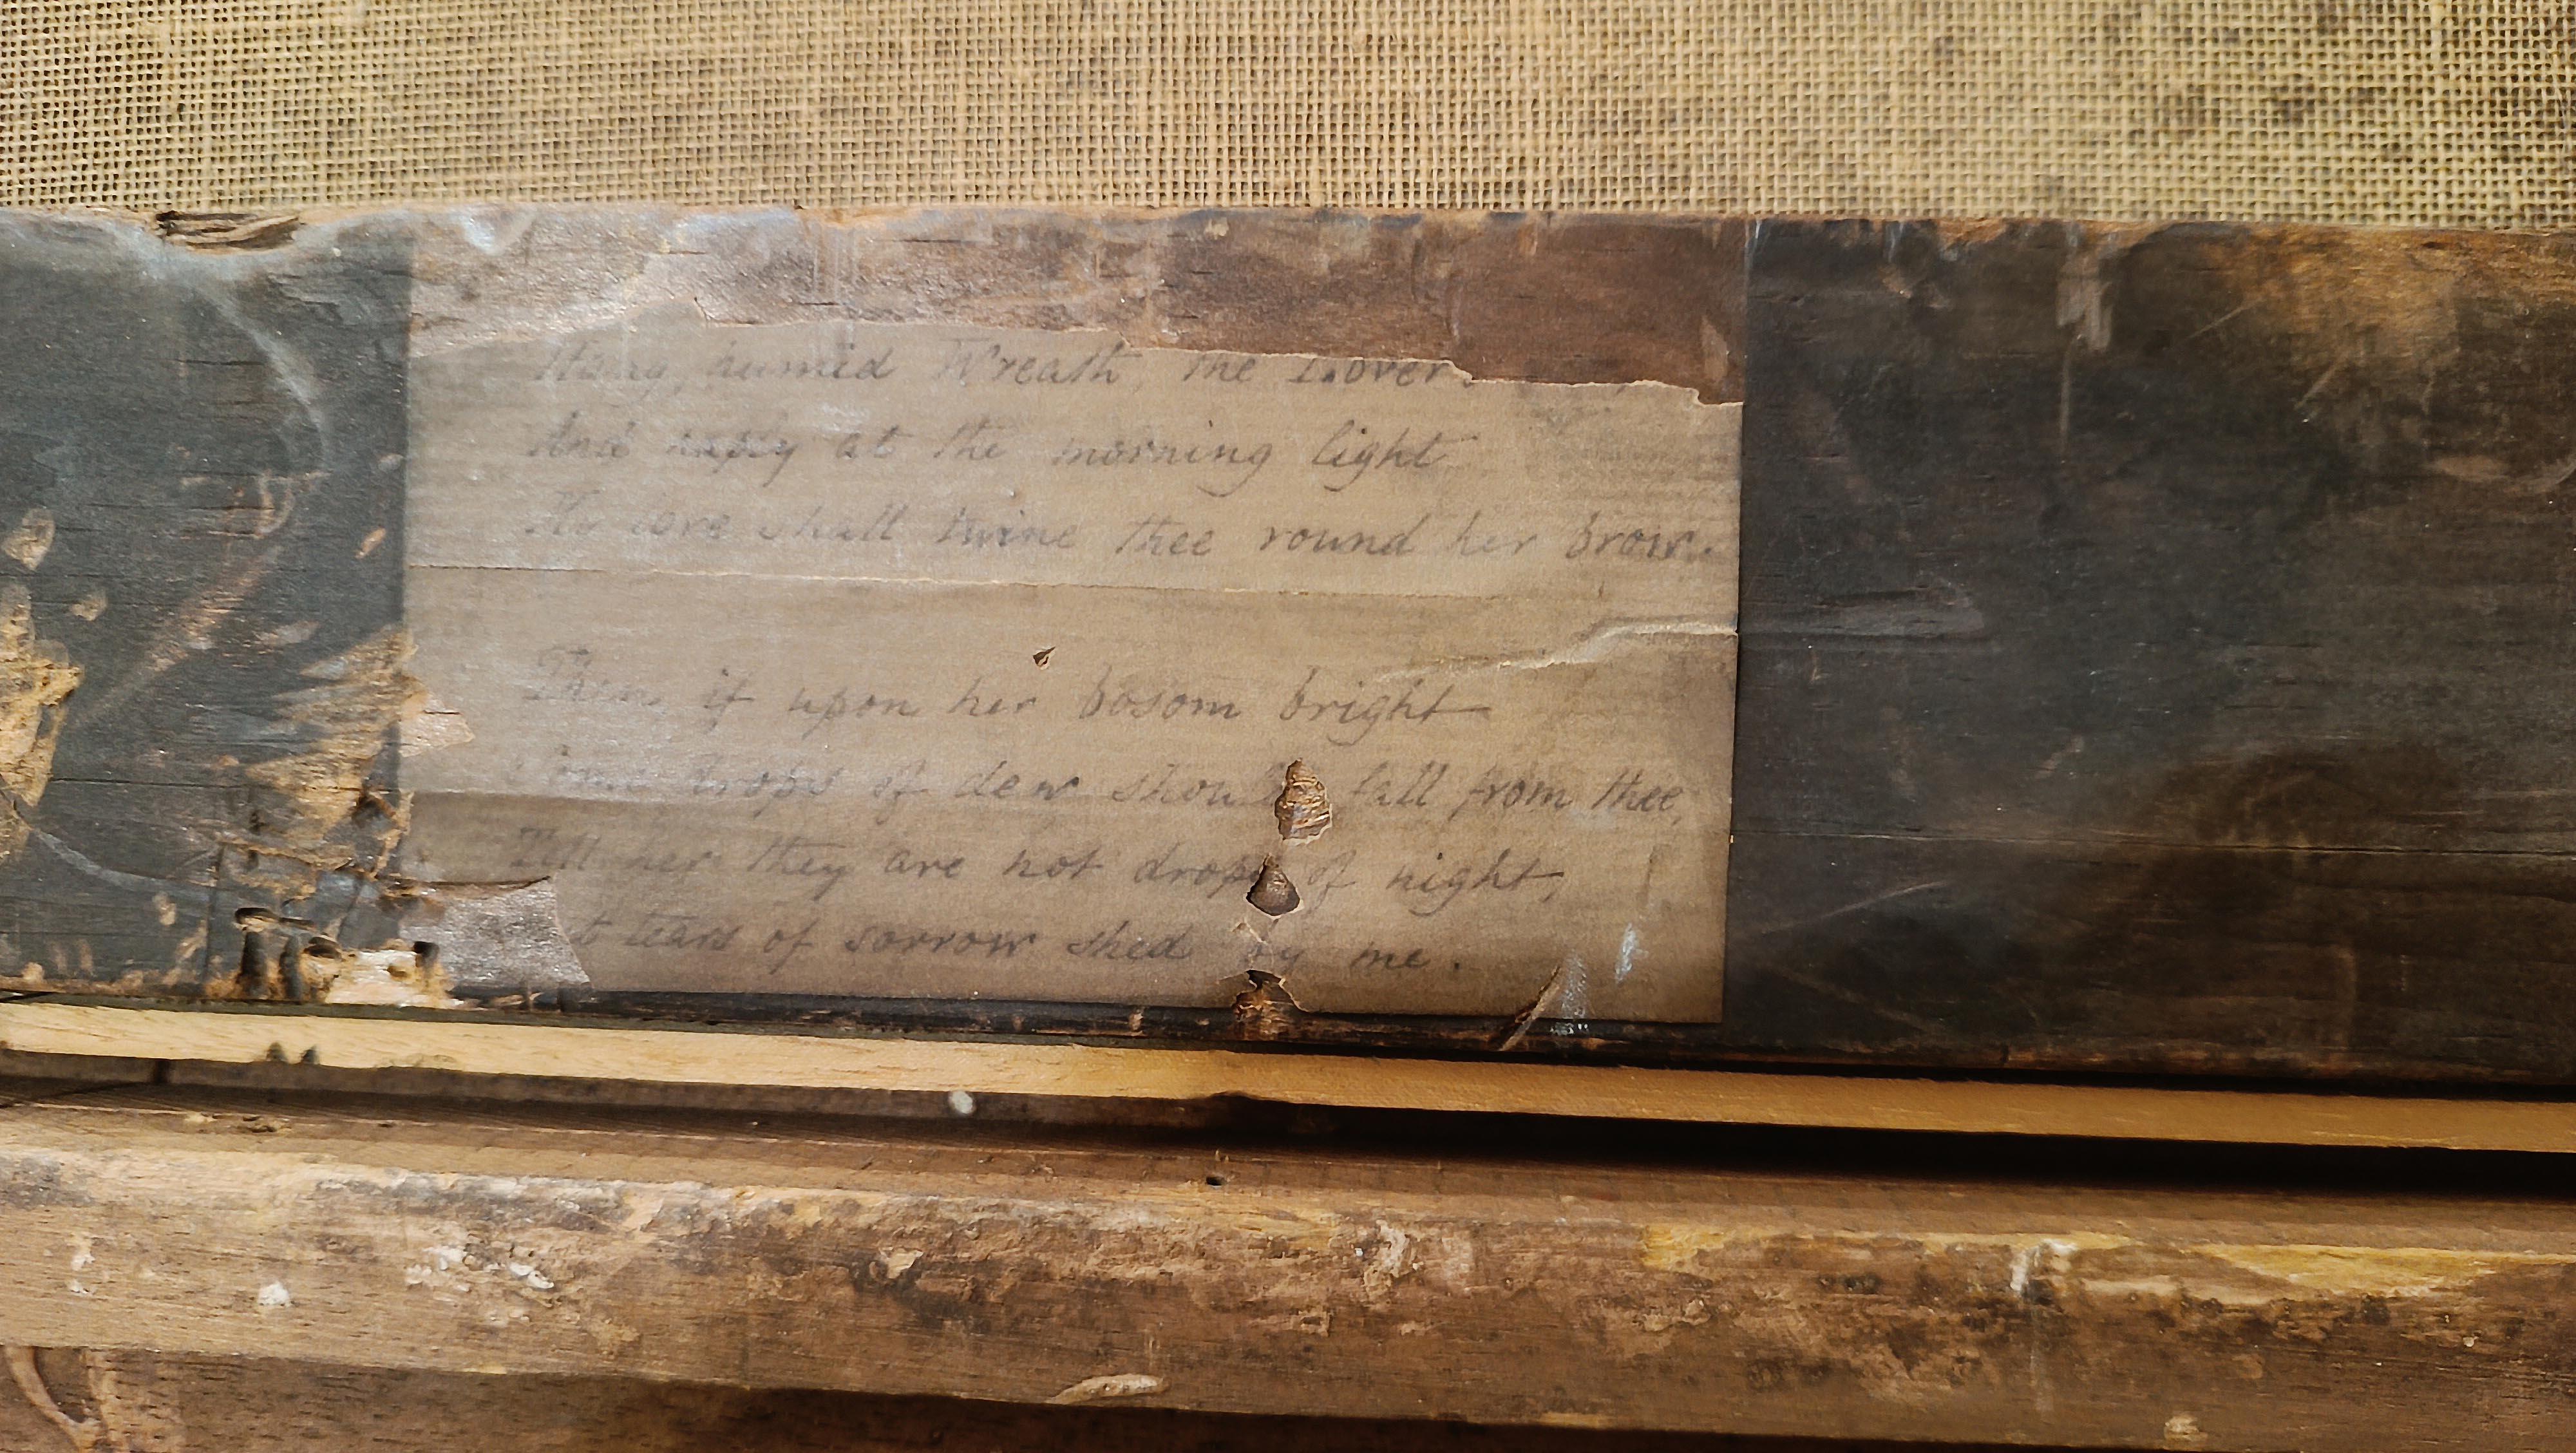 humid Wreath, the Lover
And haply at the morning light
My love shall twine thee round her brow.
Then, if upon her bosom bright
Some drops of dew should fall from thee,
Tell her they are not drops of night,
t tears of sorrow shed by me.